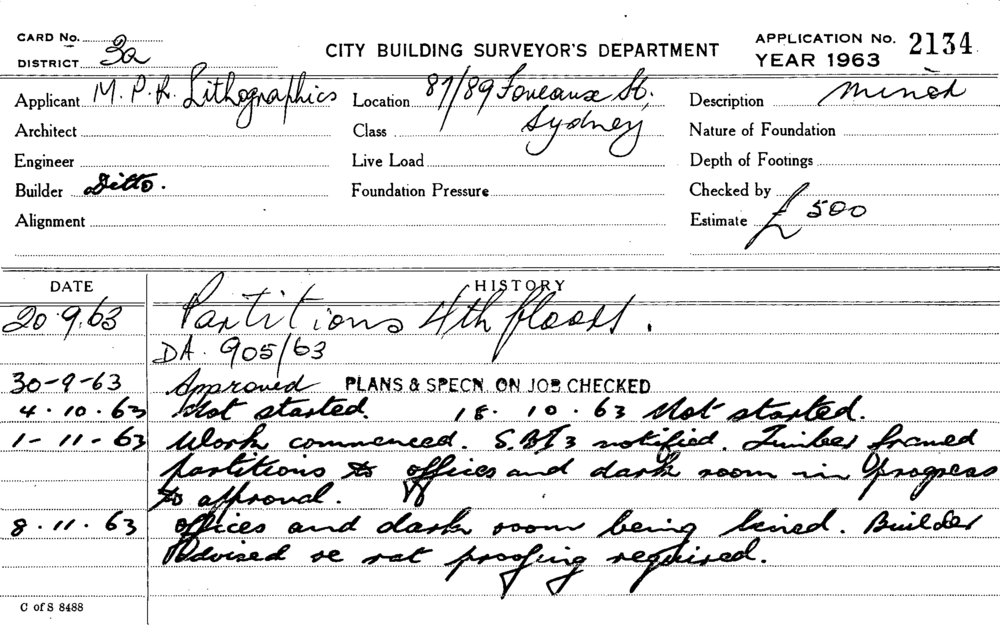 CARD No.
DISTRICT 2a
CITY BUILDING SURVEYOR'S DEPARTMENT
APPLICATION No. 2134
YEAR 1963
Applicant M. P. R. Lithographics
Location 87/89 Foveaux St,
Sydney
Description Minor
Architect
Class
Nature of Foundation
Engineer
Live Load
Depth of Footings
Builder Ditto.
Foundation Pressure
Checked by
Alignment
Estimate £ 500
DATE HISTORY
20.9.63 Partitions 4th floors.
DA. 905/63
30-9-63 Approved PLANS & SPECN. ON JOB CHECKED
4.10.63 Not started. 18.10.63 Not started.
1-11-63 Work commenced. notified. Timber framed
partitions to offices and dark room in progress
to approval.
8.11.63 offices and dark room being lined. Builder
Advised re rat proofing required.
C of S 8488